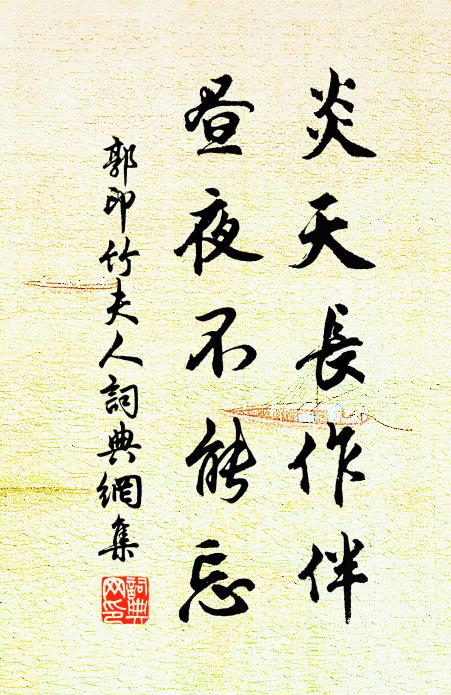 炎天長作伴
昼夜不能忘
郭印竹夫人詞典網集
詞典網印